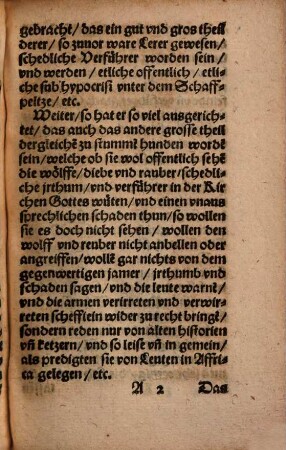 gebracht / das ein gut vnd gros theil
derer / so zuuor ware Lerer gewesen /
schedliche Verfuͤhrer worden sein /
vnd werden / etliche offentlich / etli-
che sub hypocrisi vnter dem Schaff-
peltze / etc.
Weiter / so hat er so viel ausgerich-
tet / das auch das andere grosse theil
der gleichē zu stumm̄ hunden wordē
sein / welche ob sie wol offentlich sehē
die woͤlffe / diebe vnd rauber / schedli-
che jrthum / vnd verfuͤhrer in der Kir
chen Gottes wuͤten / vnd einen vnaus
sprechlichen schaden thun / so wollen
sie es doch nicht sehen / wollen den
wolff vnd reuber nicht anbellen oder
angreiffen / wollē gar nichts von dem
gegenwertigen jamer / jrthumb vnd
schaden sagen / vnd die leute warnē /
vnd die armen verirreten vnd verwir-
reten schefflein wider zu recht bringē /
sondern reden nur von alten historien
vn̄ ketzern / vnd so leise vn̄ in gemein /
als predigten sie von Leuten in Affri-
ca gelegen / etc.
A 2 Das